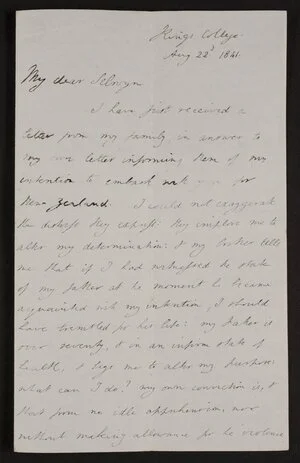 Kings College.
Aug 22d 1841.
My dear Selwyn
I have just received a
letter from my family in answer to
my own letter informing them of my
intention to embark with you for
New Zealand. I could not exaggerate
the distress they express: they implore me to
alter my determination: & my brother tells
me that if I had witnessed the state
of my father at the moment he became
acquainted with my intention, I should
have trembled for his life: my father is
over seventy, & in an infirm state of
health, & begs me to alter my purpose:
what can I do? my own conviction is, &
that from no idle apprehension, nor
without making allowance for the violence